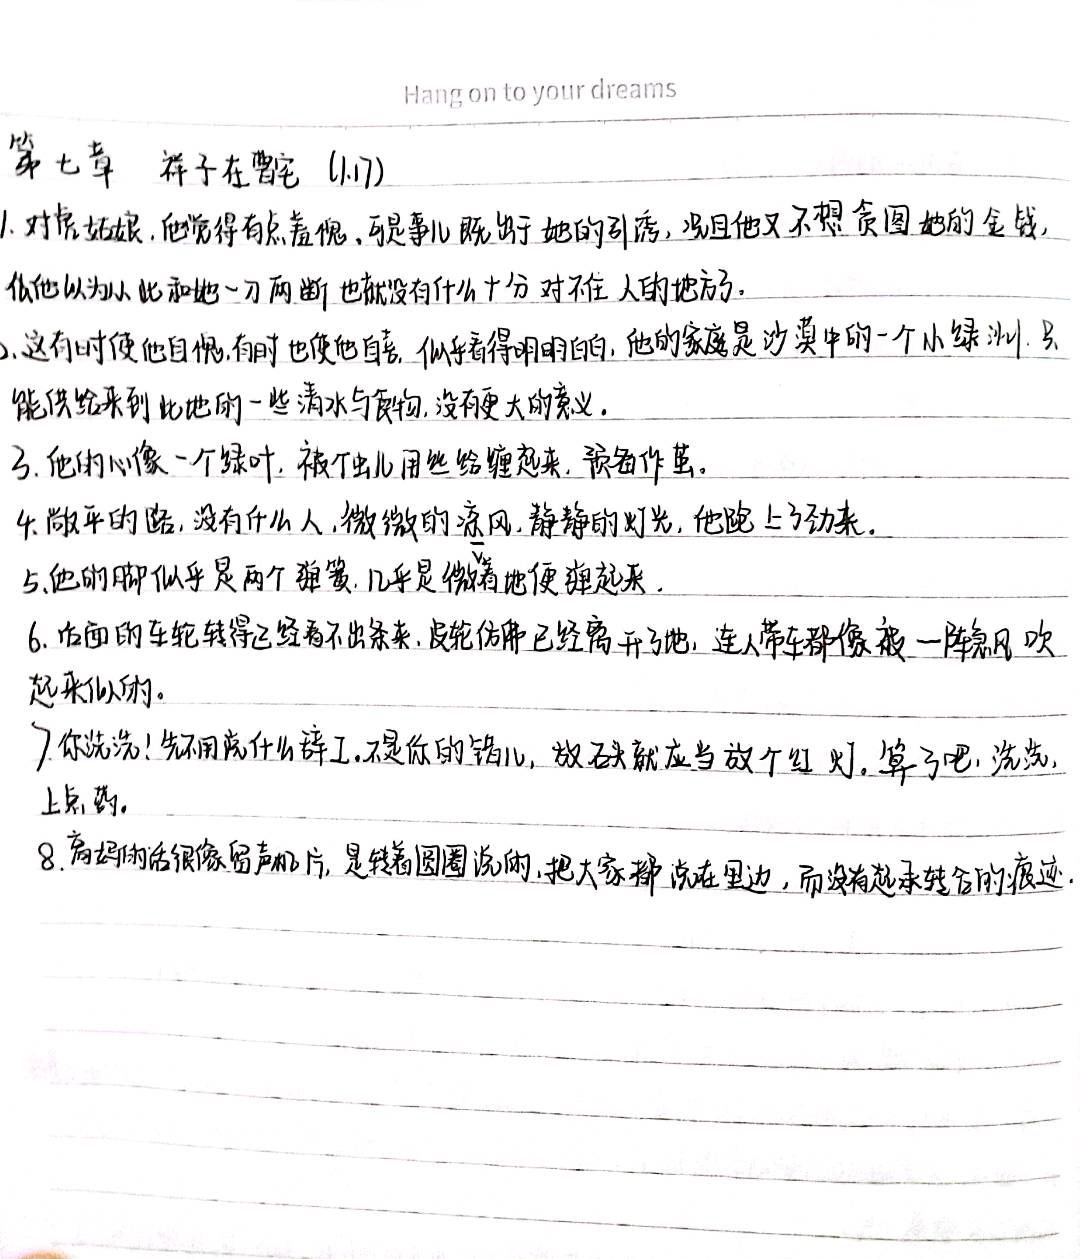 Hang on to your dreams
第七章 祥子在曹宅 (1.17)
1. 对虎姑娘,他觉得有点羞愧,可是事儿既出于她的引诱,况且他又不想贪图她的金钱,
他以为从此和她一刀两断也就没有什么十分对不住人的地方了.
2.这有时使他自愧,有时也使他自喜,似乎看得明明白白,他的家庭是沙漠中的一个小绿洲,只
能供给来到此地的一些清水与食物,没有更大的意义。
3.他的心像一个绿叶,被个虫儿用丝给缠起来,预备作茧。
4.敞平的路,没有什么人,微微的凉风,静静的灯光,他跑上了劲来。
5.他的脚似乎是两个弹簧,几乎是微着地便弹起来.
6.后面的车轮转得已经看不出条来,皮轮仿佛已经离开了地,连人带车都像被一阵急风吹
起来似的。
7你洗洗!先不用说什么辞工。不是你的错儿,放石头就应当放个红灯。算了吧,洗洗,
上点药。
8.高妈的话很像留声机片,是转着圆圈说的,把大家都说在里边,而没有起承转合的痕迹.